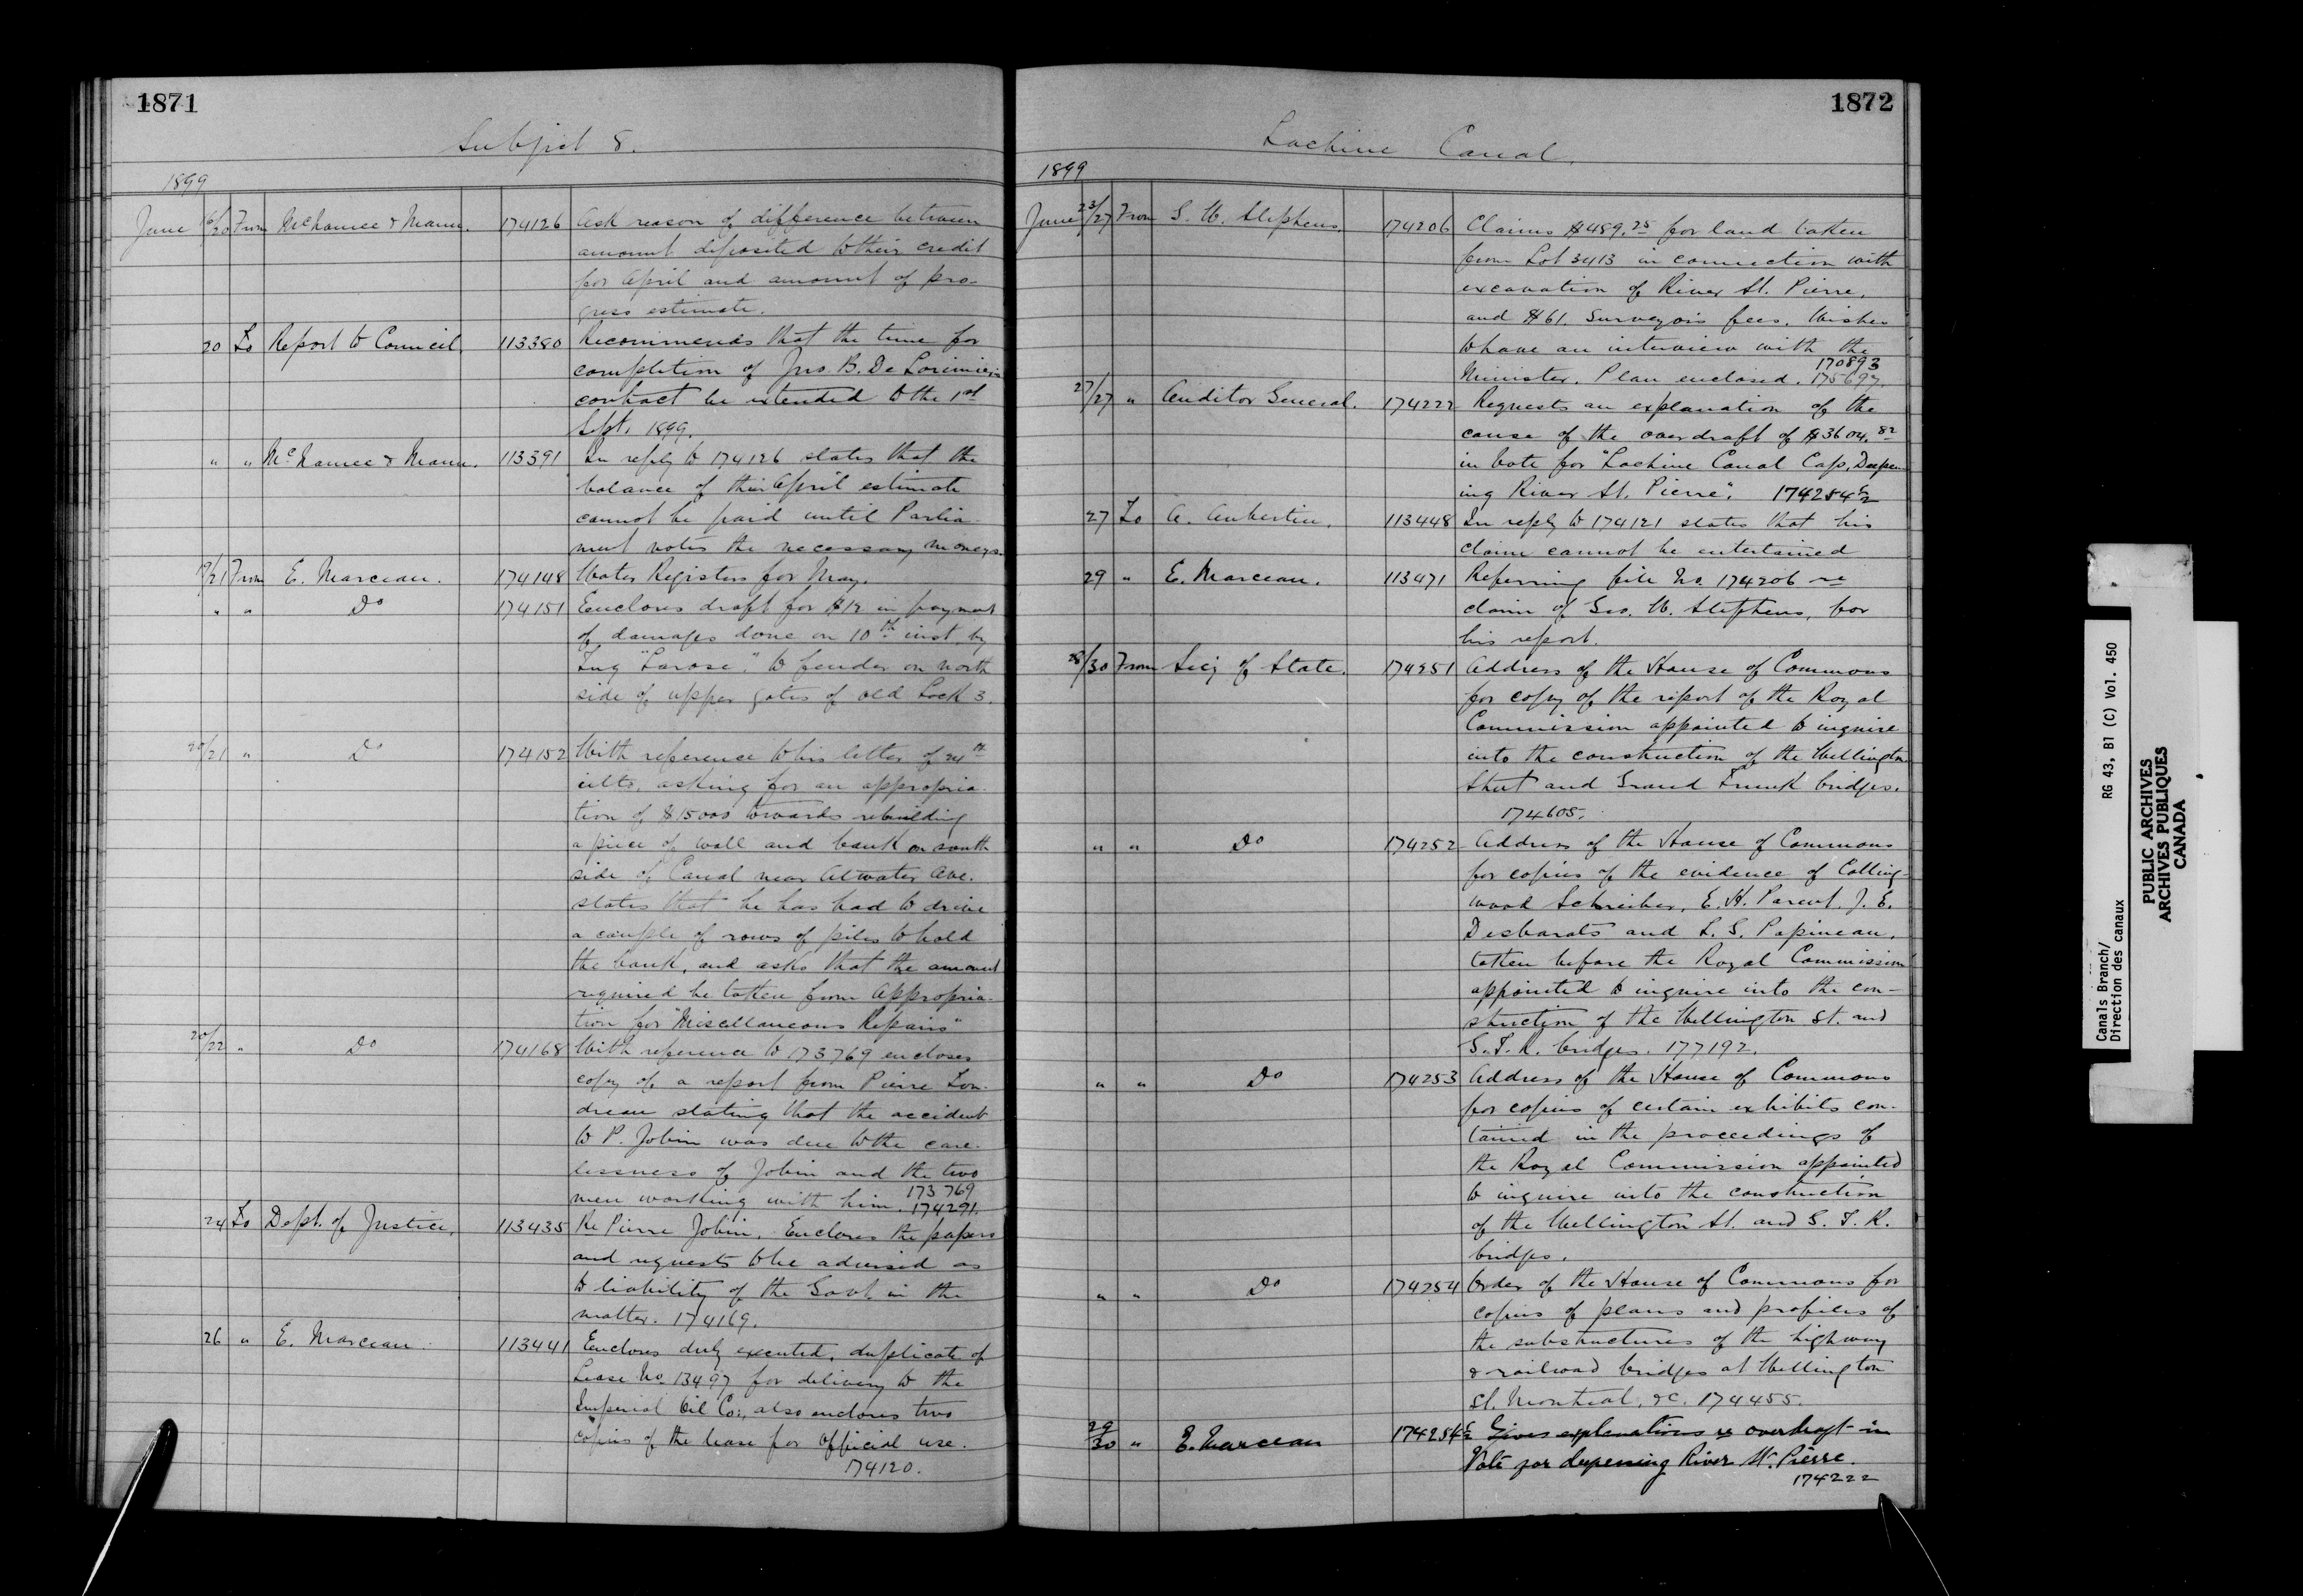 1871
Subject 8.
1899
June 16/20 From McNamee & Mann. 174126 Ask reason of difference between
amount deposited to their credit
for April and amount of pro-
gress estimate.
20 To Report to Council. 113380 Recommends that the time for
completion of Jno. B. De Lorimier's
contract be extended to the 1st
Sept. 1899.
" " McNamee & Mann. 113391 In reply to 174126 states that the
balance of their April estimate
cannot be paid until Parlia-
ment votes the necessary moneys.
19/21 From E. Marceau. 174148 Water Registers for May.
" " Do 174151 Encloses draft for $12 in payment
of damages done on 10th inst. by
Tug "Larose". to fender on north
side of upper gates of old Lock 3.
20/21 " Do 174152 With reference to his letter of 24th
ulto. asking for an appropria-
tion of $15000 towards rebuilding
a piece of wall and bank on south
side of Canal near Atwater Ave.
states that he has had to drive
a couple of rows of piles to hold
the bank, and asks that the amount
required be taken from Appropria-
tion for "Miscellaneous Repairs"
20/22 " Do 174168 With reference to 173769 encloses
copy of a report from Pierre Lon-
dreau stating that the accident
to P. Jobin was due to the care-
lessness of Jobin and the two
men working with him. 173769
174291.
24 To Dept. of Justice. 113435 Re Pierre Jobin. Encloses the papers
and requests to be advised as
to liability of the Govt. in the
matter. 174169.
26 " E. Marceau. 113441 Encloses duly executed, duplicate of
Lease No. 13497 for delivery to the
Imperial Oil Co:, also encloses two
copies of the lease for official use.
174120.
1872
Lachine Canal.
1899
June 23/27 From G. W. Stephens. 174206 Claims $489.25 for land taken
from Lot 3413 in connection with
excavation of River St. Pierre.
and $61. Surveyors fees. Wishes
to have an interview with the
170893
Minister. Plan enclosed. 175697.
27/27 " Auditor General. 174222 Requests an explanation of the
cause of the overdraft of $3604.82
in Vote for "Lachine Canal Cap. Deepen-
ing River St. Pierre". 174254½
27 To A. Aubertin. 113448 In reply to 174121 states that his
claim cannot be entertained
29 " E. Marceau. 113471 Referring file No. 174206 re
claim of Geo. W. Stephens, for
his report.
28/30 From Secy of State. 174251 Address of the House of Commons
for copy of the report of the Royal
Commission appointed to inquire
into the construction of the Wellington
Street and Grand Trunk bridges.
174605.
" " Do 174252 Address of the House of Commons
for copies of the evidence of Colling-
wood Schreiber, E. H. Parent. J. E.
Desbarats and L. G. Papineau.
taken before the Royal Commission
appointed to inquire into the con-
struction of the Wellington St. and
G. T. R. bridges. 177192.
" " Do 174253 Address of the House of Commons
for copies of certain exhibits con-
tained in the proceedings of
the Royal Commission appointed
to inquire into the construction
of the Wellington St. and G. T. R.
bridges.
" " Do 174254 Order of the House of Commons for
copies of plans and profiles of
the substructures of the highway
& railroad bridges at Wellington
St. Montreal, &c. 174455.
29/30 " E. Marceau 174254½ Gives explanations re overdraft in
Vote for deepening River St. Pierre.
174222
Canals Branch/
Direction des canaux
RG 43, B1 (C) Vol. 450
PUBLIC ARCHIVES
ARCHIVES PUBLIQUES
CANADA